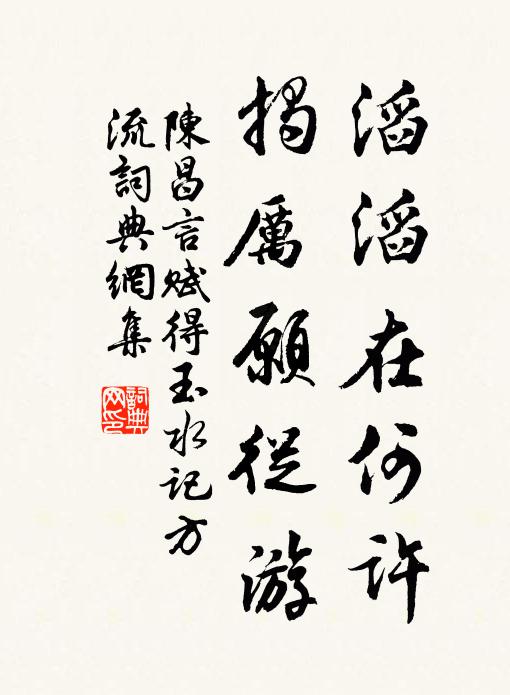 滔滔在何許
揭厲願從游
陳昌言賦得玉水記方
流詞典網集
詞典
网印